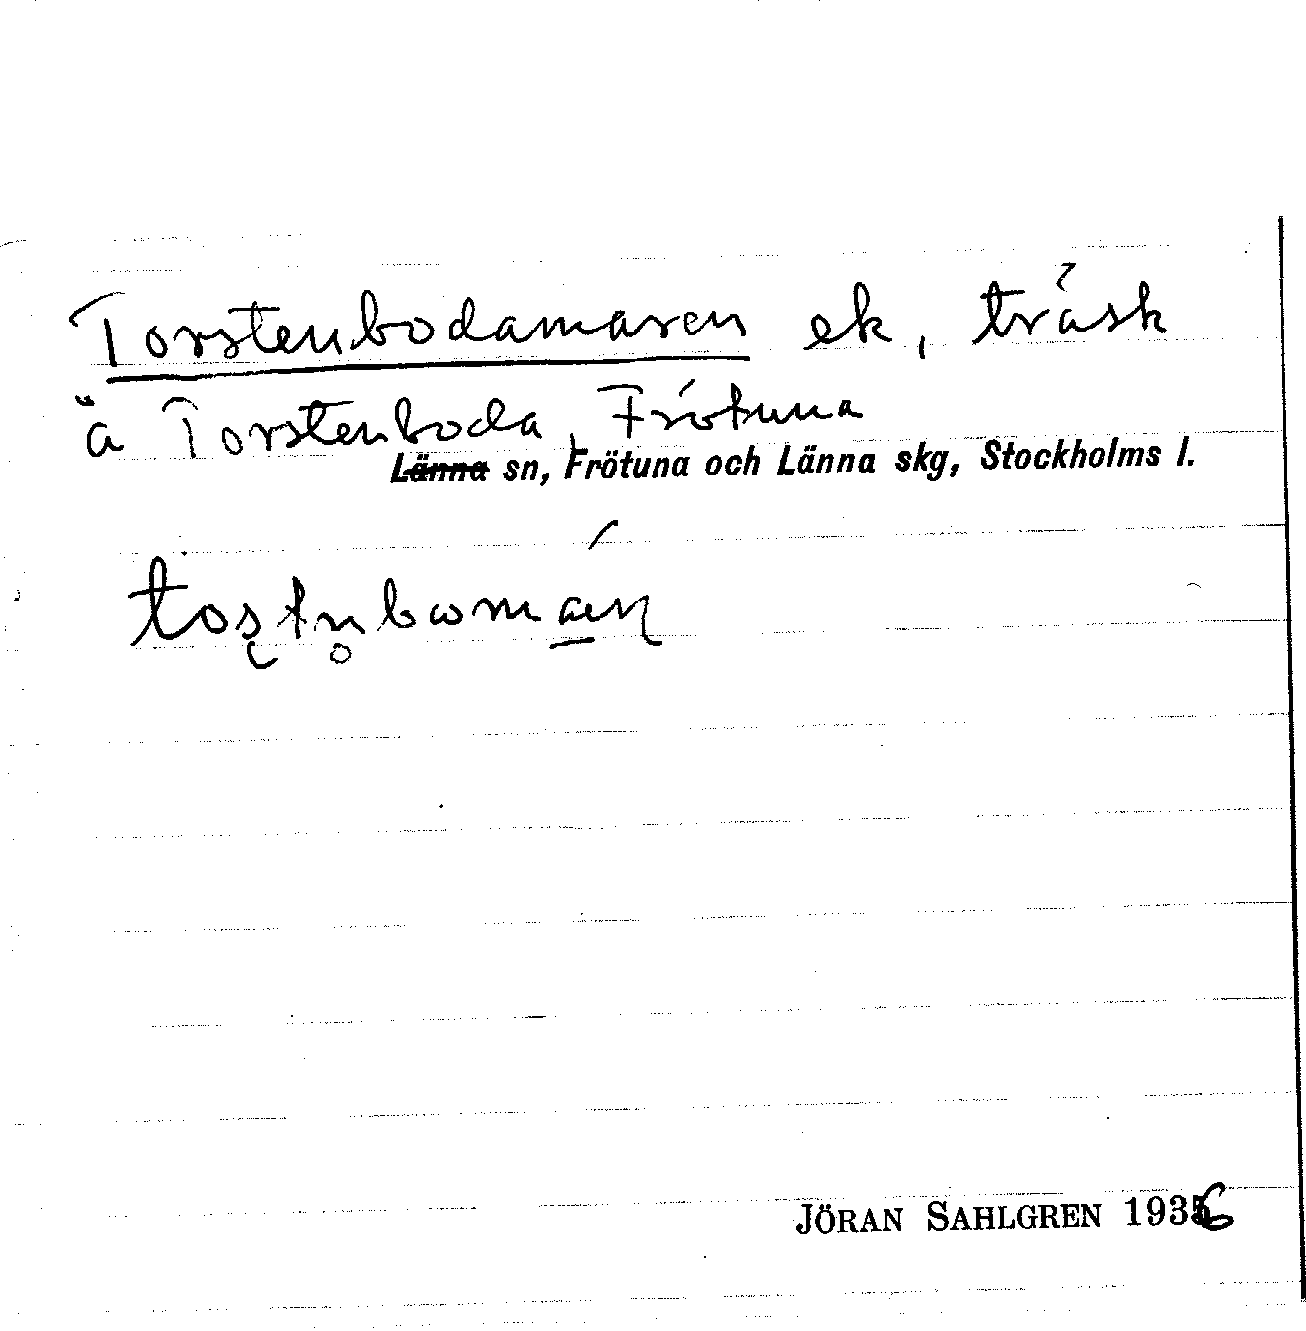 Torstenbodamaren ek, träsk
å Torstenboda, Frötuna
Länna sn, Frötuna och Länna skg, Stockholms l.
JÖRAN SAHLGREN 1936